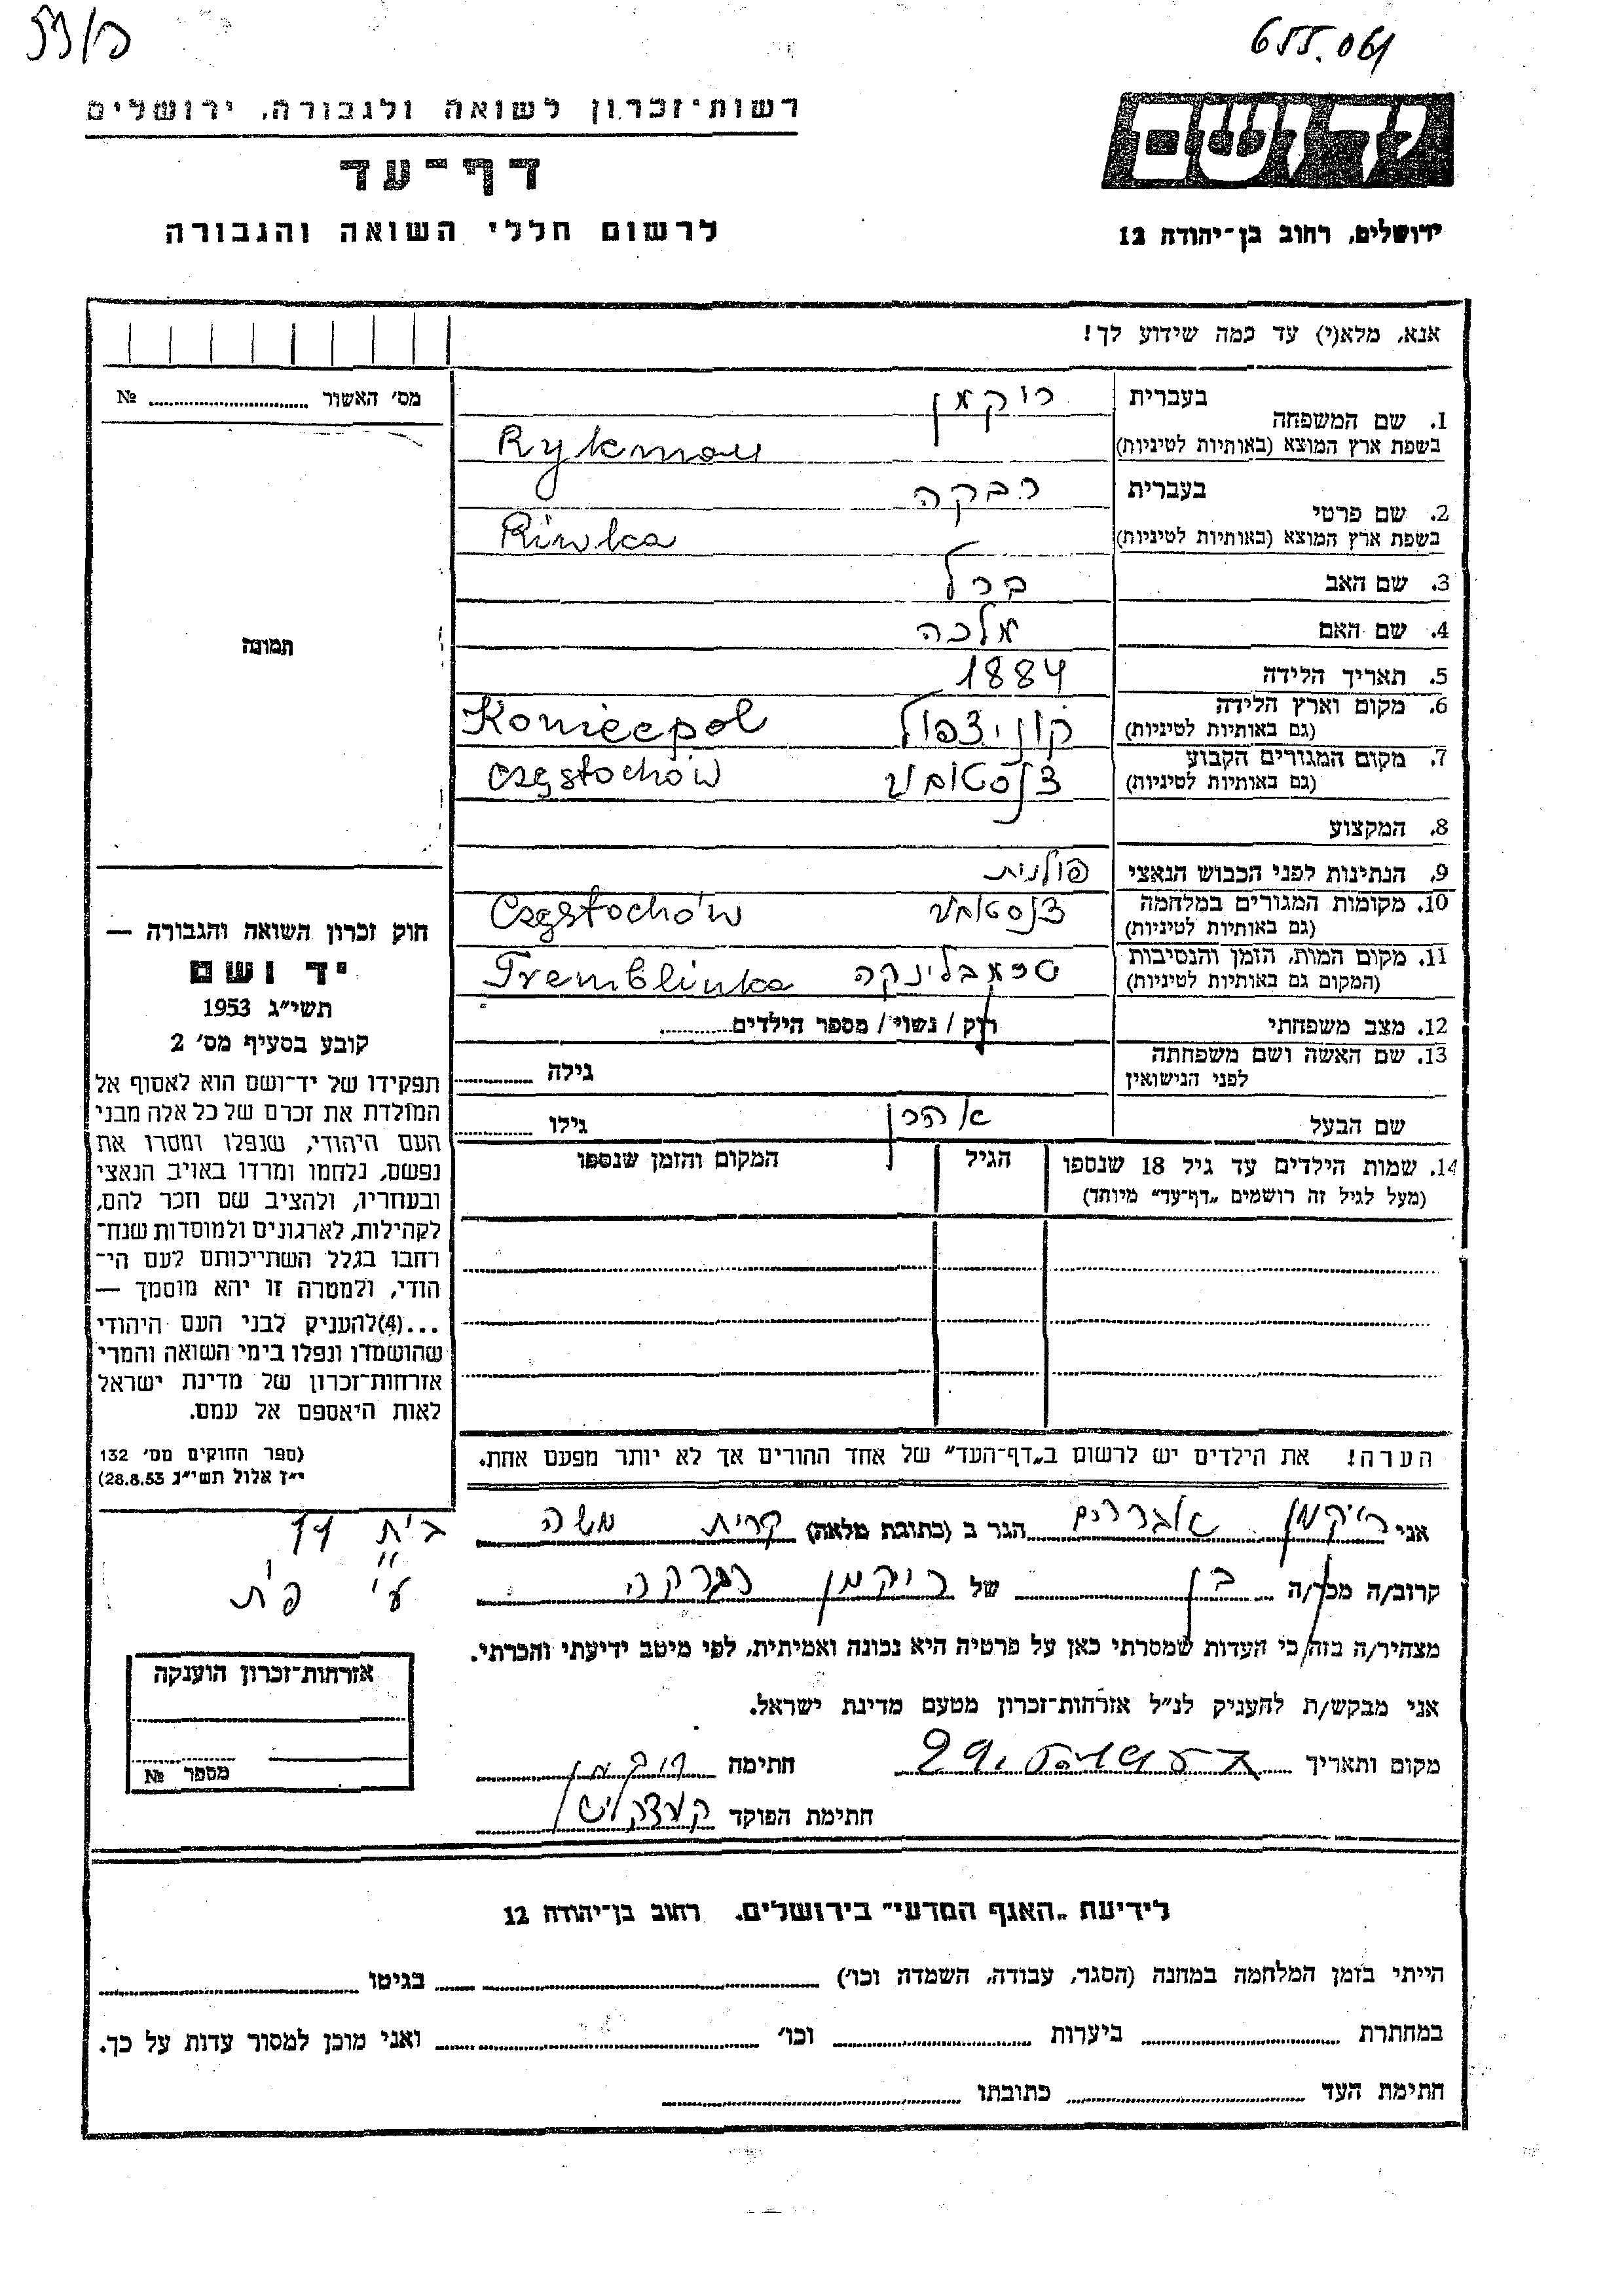 655.061
רשות־זכרון לשואה ולגבורה, ירושלים
דף־עד
לרשום חללי השואה והגבורה
יד ושם
ירושלים, רחוב בן־יהודה 12
אנא, מלא(י) עד כמה שידוע לך!
מס׳ האשור № 
1. שם המשפחה בעברית רוקמן
בשפת ארץ המוצא (באותיות לטיניות) Rykman
2. שם פרטי בעברית רבקה
בשפת ארץ המוצא (באותיות לטיניות) Riwka
3. שם האב ברל
4. שם האם מלכה
5. תאריך הלידה 1884
6. מקום וארץ הלידה קוניצפול Koniecpol
(גם באותיות לטיניות)
7. מקום המגורים הקבוע צנסטוב Częstochów
(גם באותיות לטיניות)
8. המקצוע
9. הנתינות לפני הכבוש הנאצי פולנית
10. מקומות המגורים במלחמה Częstochów
(גם באותיות לטיניות)
11. מקום המות, הזמן והנסיבות טרמבלינקה Tremblinka
(המקום גם באותיות לטיניות)
12. מצב משפחתי רוק / נשוי / מספר הילדים
13. שם האשה ושם משפחתה לפני הנישואין גילה
שם הבעל אהרן גילו
14. שמות הילדים עד גיל 18 שנספו הגיל המקום והזמן שנספו
(מעל לגיל זה רושמים „דף־עד״ מיוחד)
תמונה
חוק זכרון השואה והגבורה —
יד ושם
תשי״ג 1953
קובע בסעיף מס׳ 2
תפקידו של יד־ושם הוא לאסוף אל
המולדת את זכרם של כל אלה מבני
העם היהודי, שנפלו ומסרו את
נפשם, נלחמו ומרדו באויב הנאצי
ובעוזריו, ולהציב שם וזכר להם,
לקהילות, לארגונים ולמוסדות שנח־
רחבו בגלל השתייכותם לעם הי־
הודי, ולמטרה זו יהא מוסמך —
...(4)להעניק לבני העם היהודי
שהושמדו ונפלו בימי השואה והמרי
אזרחות־זכרון של מדינת ישראל
לאות היאספם אל עמם.
(ספר החוקים מס׳ 132
י״ז אלול תשי״ג 28.8.53)
הערה! את הילדים יש לרשום ב„דף־העד״ של אחד ההורים אך לא יותר מפעם אחת.
אני רייקמן אברהם הגר ב (כתובת מלאה) קרית משה
בית 17
ע״י פ״ת
קרוב/ה מכר/ה בן של רויקמן רבקה
מצהיר/ה בזה כי העדות שמסרתי כאן על פרטיה היא נכונה ואמיתית, לפי מיטב ידיעתי והכרתי.
אני מבקש/ת להעניק לנ״ל אזרחות־זכרון מטעם מדינת ישראל.
מקום ותאריך חתימה רוקמן
חתימת הפוקד
אזרחות־זכרון הוענקה
מספר №
לידיעת „האגף המדעי״ בירושלים. רחוב בן־יהודה 12
הייתי בזמן המלחמה במחנה (הסגר, עבודה, השמדה וכו׳) בגיטו
במחתרת ביערות וכו׳ ואני מוכן למסור עדות על כך.
חתימת העד כתובתו